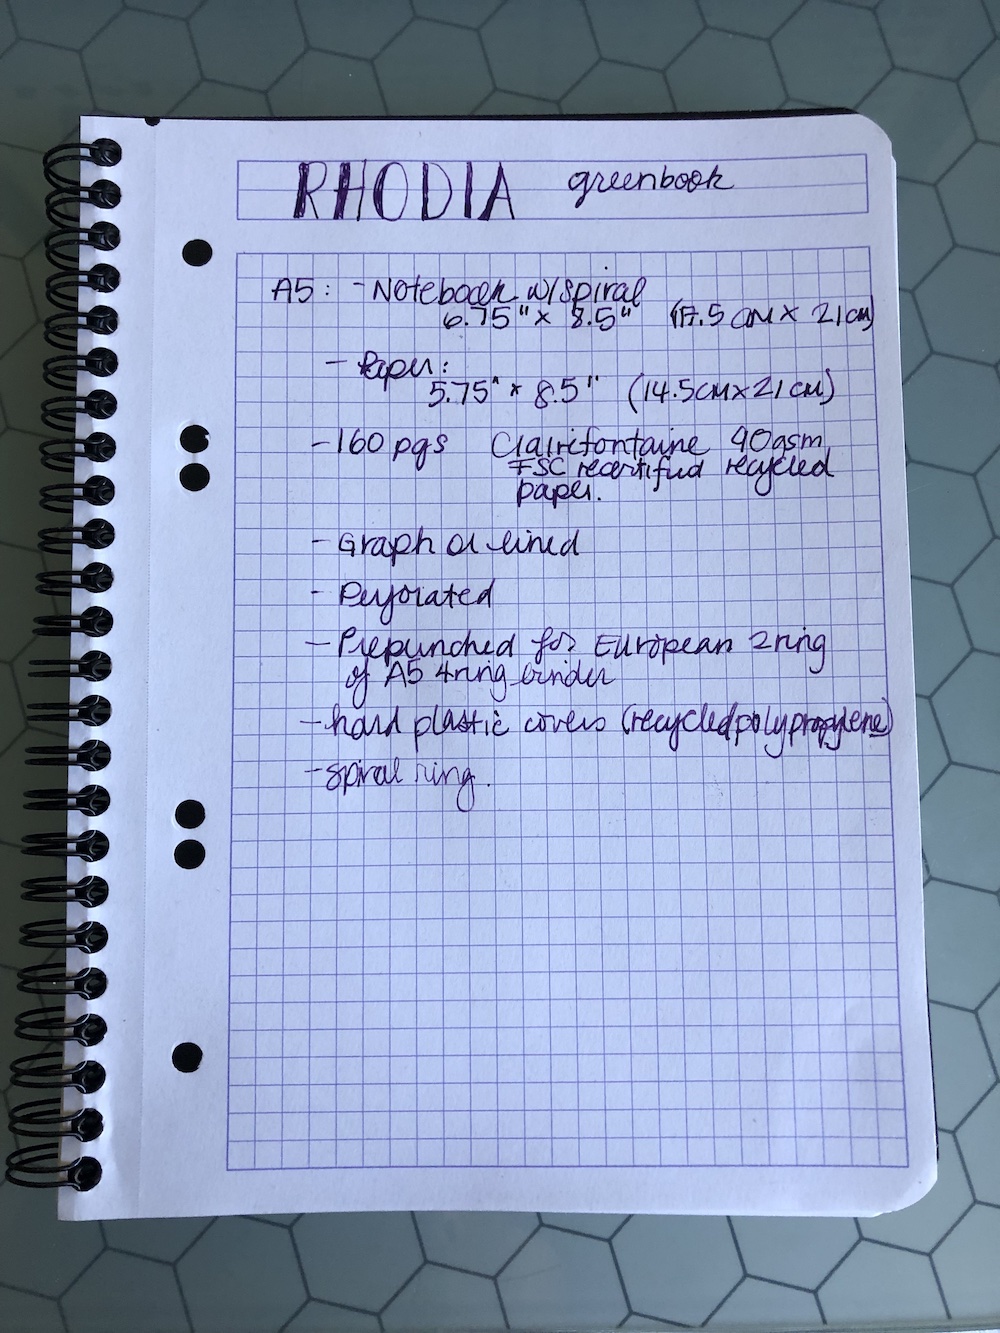 RHODIA greenbook
A5: - Notebook w/spiral
6.75" x 8.5" (17.5 cm x 21 cm)
- Paper:
5.75" x 8.5" (14.5cm x 21 cm)
- 160 pgs Clairefontaine 90gsm
FSC recertified recycled
paper.
- Graph or lined
- Perforated
- Prepunched for European 2 ring
of A5 4 ring binder
- hard plastic covers (recycled polypropylene)
- spiral ring.